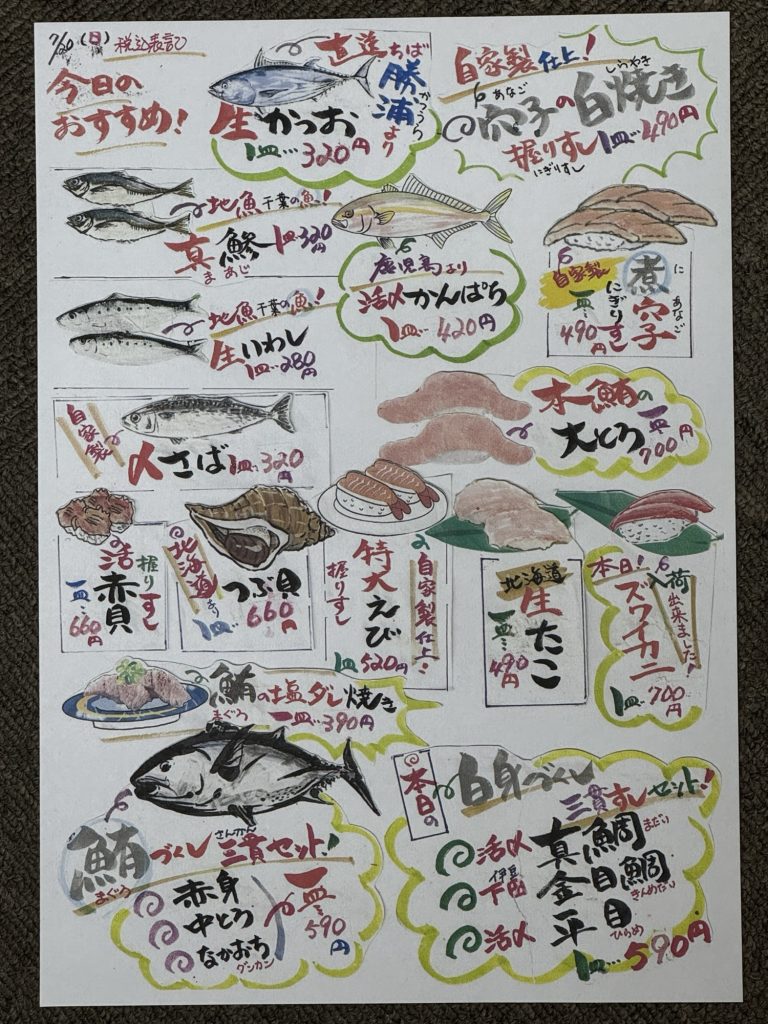 7/20(日) 税込表記
今日の
おすすめ!
直送 ちば
勝浦より
かつうら
生かつお
1皿…320円
自家製仕上!
しらやき
あなご
穴子の白焼き
握りすし1皿…490円
にぎりすし
地魚 千葉の魚!
真鯵 1皿…320円
まあじ
鹿児島より
活〆かんぱち
1皿…420円
自家製
煮穴子
に あなご
にぎりすし
一皿…490円
地魚 千葉の魚!
生いわし
1皿…280円
自家製
〆さば 1皿…320円
本鮪の
大とろ 一皿…700円
活赤貝
握りすし
一皿…660円
北海道より
つぶ貝
1皿…660円
自家製仕上!
特大えび
握りすし
1皿…520円
北海道
生たこ
一皿…490円
本日!
入荷出来ました!
ズワイカニ
1皿…700円
鮪の塩ダレ焼き
まぐろ
一皿…390円
さんかん
鮪づくし三貫セット!
まぐろ
赤身
中とろ
なかおち
グンカン
一皿…590円
本日の
白身づくし
三貫すしセット!
活〆 真鯛 まだい
伊豆
下田 金目鯛 きんめだい
活〆 平目 ひらめ
1皿…590円